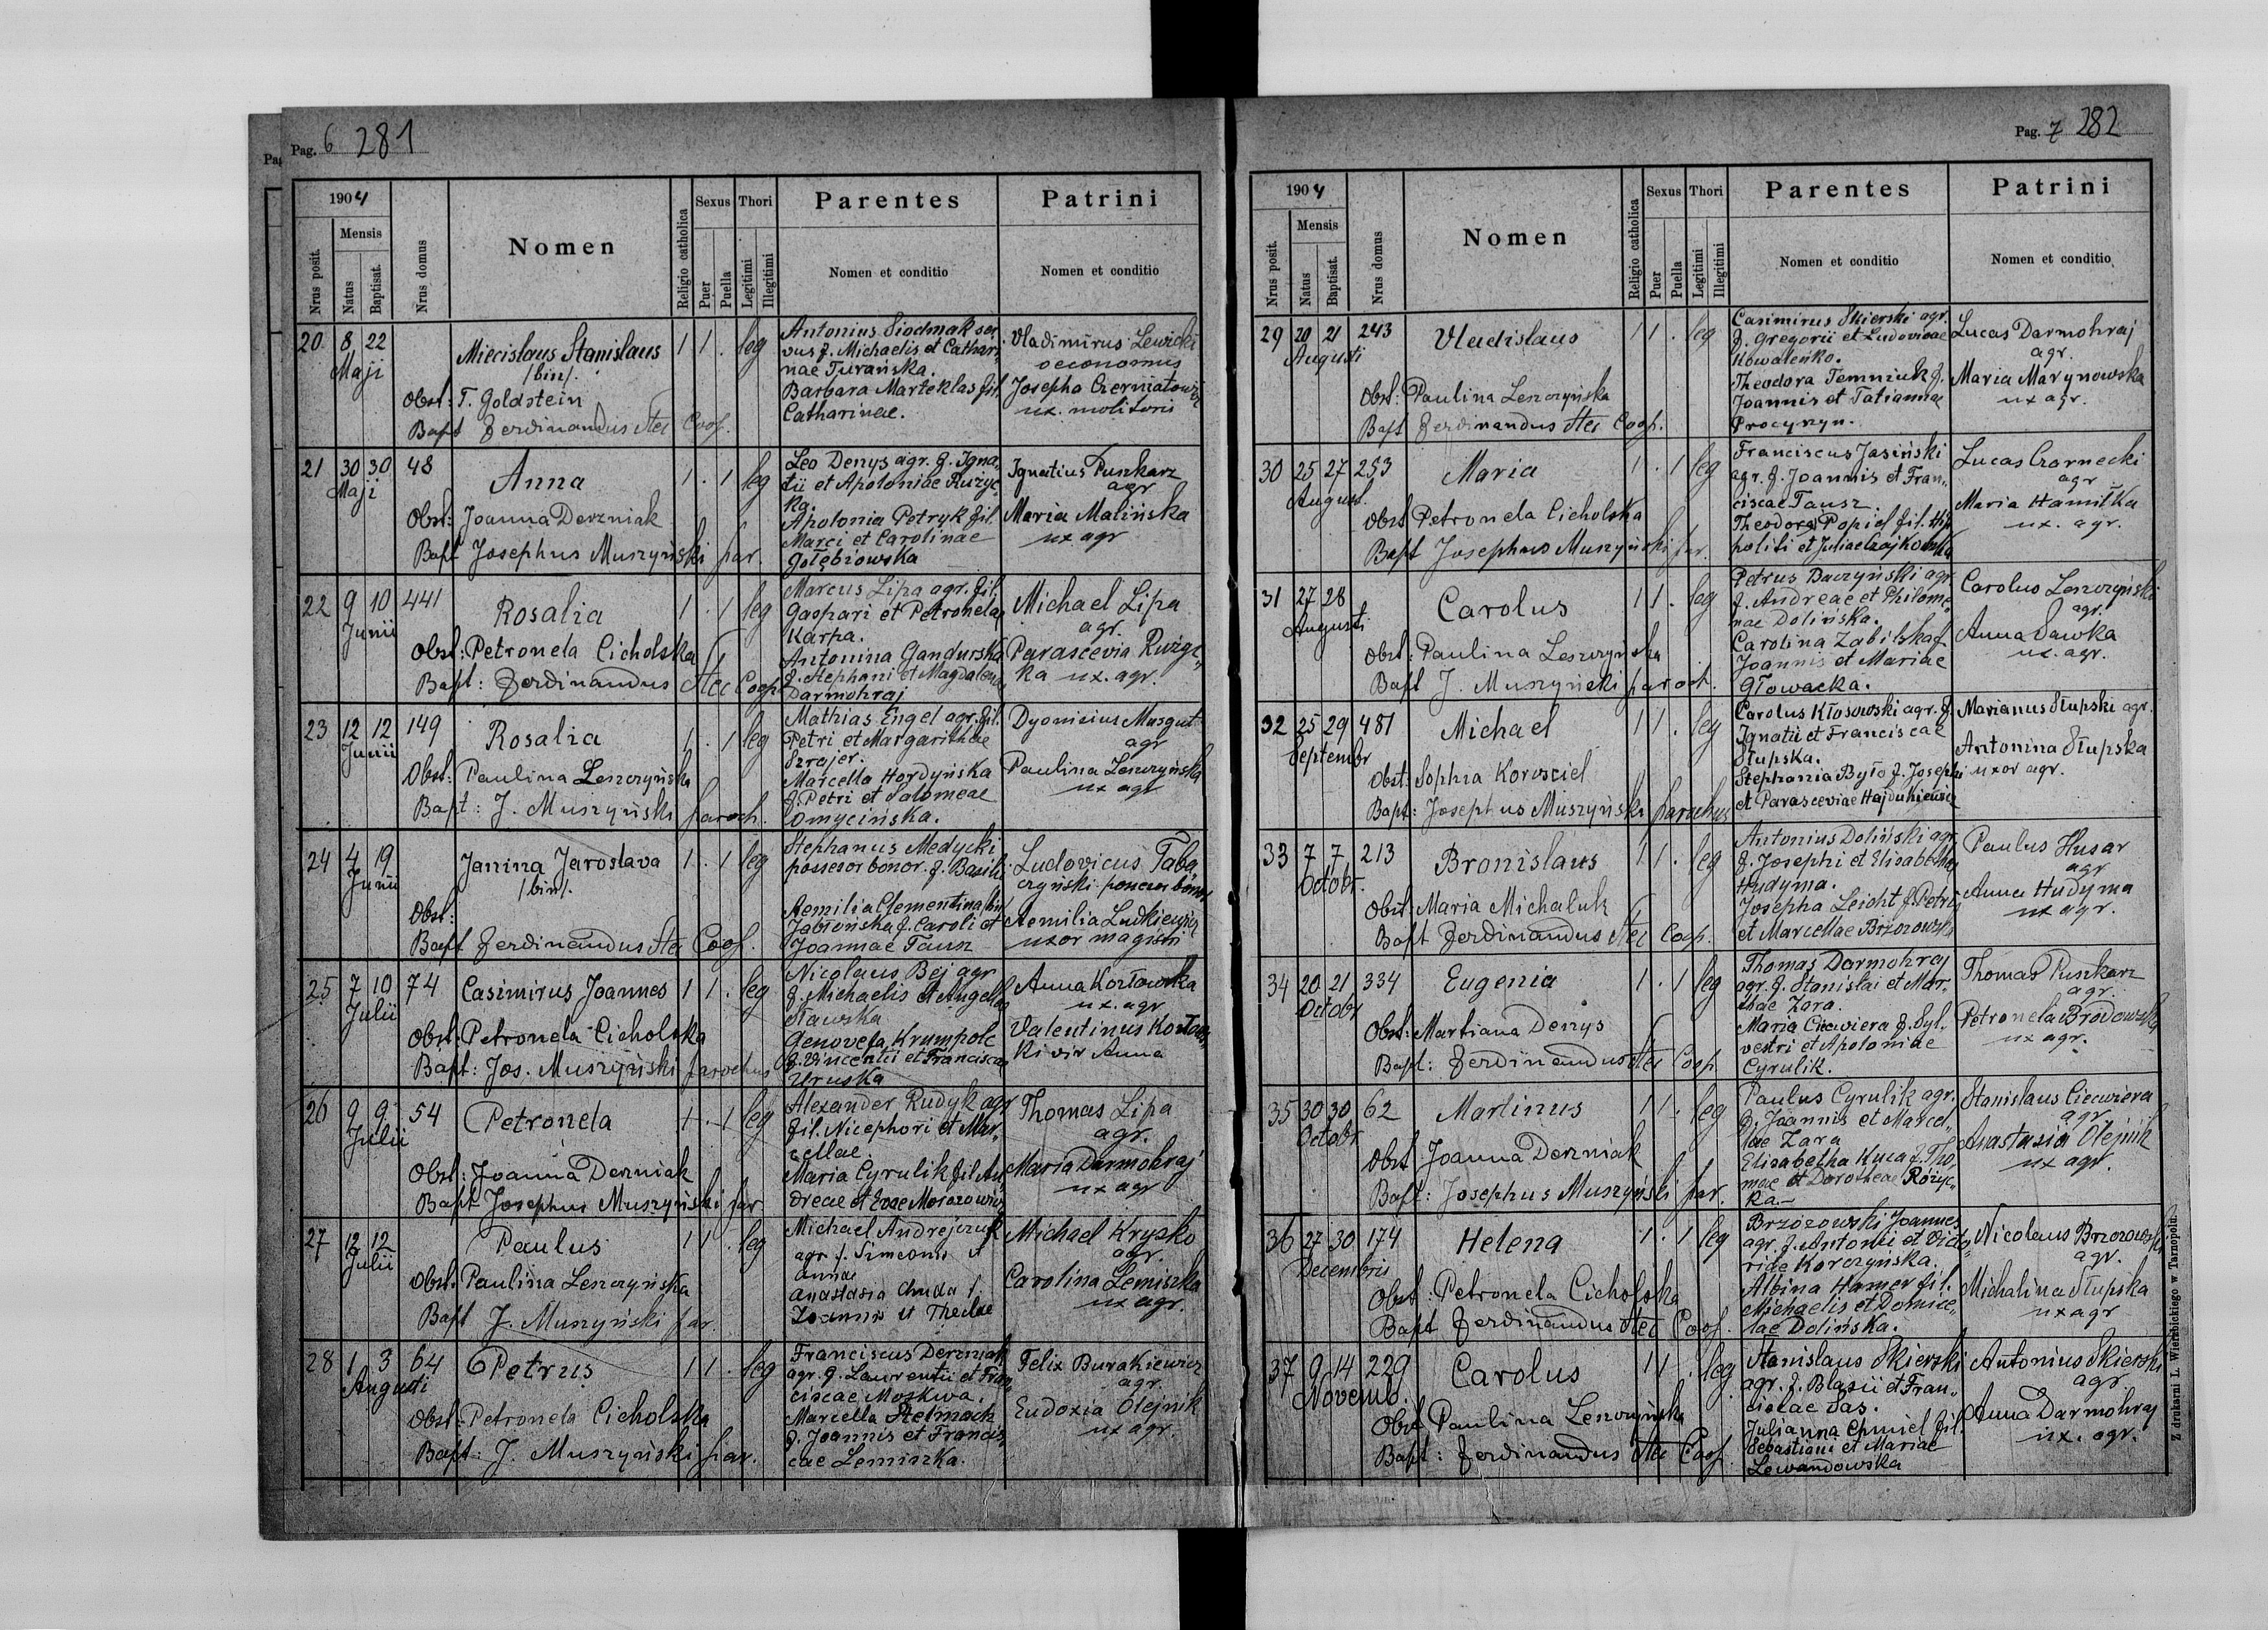 Pag. 6 281
1904
Nrus posit.
Mensis
Natus
Baptisat.
Nrus domus
Nomen
Religio catholica
Sexus
Puer
Puella
Thori
Legitimi
Illegitimi
Parentes
Nomen et conditio
Patrini
Nomen et conditio
20 8 22 Maji
Miecislaus Stanislaus /bin/.
1 1 . leg
Obst: T. Goldstein
Bapt Ferdinandus Stec Coop.
Antonius Siodmak ser
vus f. Michaelis et Cathari
nae Turańska.
Barbara Marteklas fil.
Catharinae.
Vladimirus Lewicki
oeconomus
Josepha Czerniatowicz
ux. molitoris
21 30 30 Maji 48
Anna
1 . 1 leg
Obst: Joanna Derzniak
Bapt Josephus Muszyński par.
Leo Denys agr. f. Igna„
tii et Apoloniae Ruzyc
ka.
Apolonia Petryk fil.
Marci et Carolinae
Gołębiowska
Ignatius Puszkarz
agr
Maria Malińska
ux agr
22 9 10 Junii 441
Rosalia
1 . 1 leg
Obst: Petronela Cicholska
Bapt: Ferdinandus Stec Coop
Marcus Lipa agr. fil.
Gaspari et Petronelae
Karpa.
Antonina Gandurska
f. Stephani et Magdalenae
Darmohraj
Michael Lipa
agr.
Parascevia Rużyc„
ka ux. agr.
23 12 12 Junii 149
Rosalia
1 . 1 leg
Obst: Paulina Leszczyńska
Bapt: J. Muszyński paroch.
Mathias Engel agr. fil.
Petri et Margarithae
Szrajer.
Marcella Hordyńska
f. Petri et Salomeae
Omycińska.
Dyonisius Musgut
agr
Paulina Leszczyńska
ux agr
24 4 19 Junii
Janina Jaroslava /bin/.
1 . 1 leg
Obst:
Bapt Ferdinandus Stec Coop.
Stephanus Medycki
possesor bonor. f. Basilii
Aemilia Clementina /bin/
Jabłońska f. Caroli et
Joannae Tausz
Ludovicus Taba„
czyński possesor bonor
Aemilia Ludkiewicz
uxor magistri
25 7 10 Julii 74
Casimirus Joannes
1 1 . leg
Obst: Petronela Cicholska
Bapt: Jos. Muszyński parochus
Nicolaus Bej agr
f. Michaelis et Angelae
Sławska
Genovefa Krumpolc
f. Vincentii et Franciscae
Uruska
Anna Kozłowska
ux. agr
Valentinus Kozłows„
ki vir Anna
26 9 9 Julii 54
Petronela
1 . 1 leg
Obst: Joanna Derzniak
Bapt Josephus Muszyński par
Alexander Rudyk agr
fil. Nicephori et Mar„
cellae.
Maria Cyrulik fil An„
dreae et Evae Morozowicz
Thomas Lipa
agr.
Maria Darmohraj
ux agr
27 12 12 Julii
Paulus
1 1 . leg
Obst: Paulina Leszczyńska
Bapt J. Muszyński par.
Michael Andrejczuk
agr f. Simeonis et
Annae
Anastasia Chuda f.
Joannis et Theclae
Michael Krysko
agr.
Carolina Lemiszka
ux agr.
28 1 3 Augusti 64
Petrus
1 1 . leg
Obst: Petronela Cicholska
Bapt: J. Muszyński par.
Franciscus Derzniak
agr. f. Laurentii et Fran„
ciscae Moskwa.
Marcella Stelmach
f. Joannis et Francis„
cae Lemiszka.
Felix Burakiewicz
agr.
Eudoxia Olejnik
ux agr.
Pag. 7 282
1904
Nrus posit.
Mensis
Natus
Baptisat.
Nrus domus
Nomen
Religio catholica
Sexus
Puer
Puella
Thori
Legitimi
Illegitimi
Parentes
Nomen et conditio
Patrini
Nomen et conditio
29 20 21 Augusti 243
Vladislaus
1 1 . leg
Obst: Paulina Leszczyńska
Bapt Ferdinandus Stec Coop.
Casimirus Skierski agr.
f. Gregorii et Ludovicae
Kowalenko.
Theodora Temniuk f.
Joannis et Tatiannae
Procyzyn.
Lucas Darmohraj
agr.
Maria Marynowska
ux agr.
30 25 27 August. 253
Maria
1 . 1 leg
Obst Petronela Cicholska
Bapt Josephus Muszyński par.
Franciscus Jasiński
agr. f. Joannis et Fran„
ciscae Tausz.
Theodora Popiel fil. Hip
politi et Juliae Czajkowska
Lucas Czarnecki
agr
Maria Hamiłka
ux. agr.
31 27 28 Augusti
Carolus
1 1 . leg
Obst: Paulina Leszczyńska
Bapt J. Muszyński paroch.
Petrus Baczyński agr.
f. Andreae et Philome„
nae Dolińska.
Carolina Zabilska f.
Joannis et Mariae
Głowacka.
Carolus Leszczyński
agr.
Anna Sawka
ux. agr.
32 25 29 Septembr 481
Michael
1 1 . leg
Obst: Sophia Korosciel
Bapt: Josephus Muszyński parochus
Carolus Kłosowski agr. f.
Ignatii et Franciscae
Słupska.
Stephania Było f. Josephi
et Parasceviae Hajdukiewicz
Marianus Słupski agr.
Antonina Słupska
uxor agr.
33 7 7 Octobr. 213
Bronislaus
1 1 . leg
Obst: Maria Michaluk
Bapt Ferdinandus Stec Coop.
Antonius Doliński agr.
f. Josephi et Elisabethae
Hudyma.
Josepha Leicht f. Petri
et Marcellae Brzozowska
Paulus Husar
agr
Anna Hudyma
ux agr.
34 20 21 Octobr 334
Eugenia
1 . 1 leg
Obst: Martiana Denys
Bapt: Ferdinandus Stec Coop.
Thomas Darmohraj
agr. f. Stanislai et Mar„
thae Zara.
Maria Ciecwiera f. Syl„
vestri et Apoloniae
Cyrulik.
Thomas Puszkarz
agr.
Petronela Brodowska
ux agr.
35 30 30 Octobr 62
Martinus
1 1 . leg
Obst Joanna Derzniak
Bapt: Josephus Muszyński par.
Paulus Cyrulik agr.
f. Joannis et Marcel„
lae Zara
Elisabetha Kuca f. Tho„
mae et Dorotheae Rózyc„
ka
Stanislaus Ciecwiera
agr
Anastasia Olejnik
ux agr.
36 27 30 Decembris 174
Helena
1 . 1 leg
Obst: Petronela Cicholska
Bapt Ferdinandus Stec Coop.
Brzozowski Joannes
agr. f. Antonii et Victo„
riae Korczyńska.
Albina Hamer fil.
Michaelis et Domicel„
lae Dolińska.
Nicolaus Brzozowski
agr.
Michalina Słupska
ux agr
37 9 14 Novemb. 229
Carolus
1 1 . leg
Obst Paulina Leszczyńska
Bapt: Ferdinandus Stec Coop.
Stanislaus Skierski
agr. f. Blasii et Fran„
ciscae Sas.
Julianna Chmiel fil.
Sebastiani et Mariae
Lewandowska
Antonius Skierski
agr.
Anna Darmohraj
ux. agr.
Z drukarni L. Wierzbickiego w Tarnopolu.